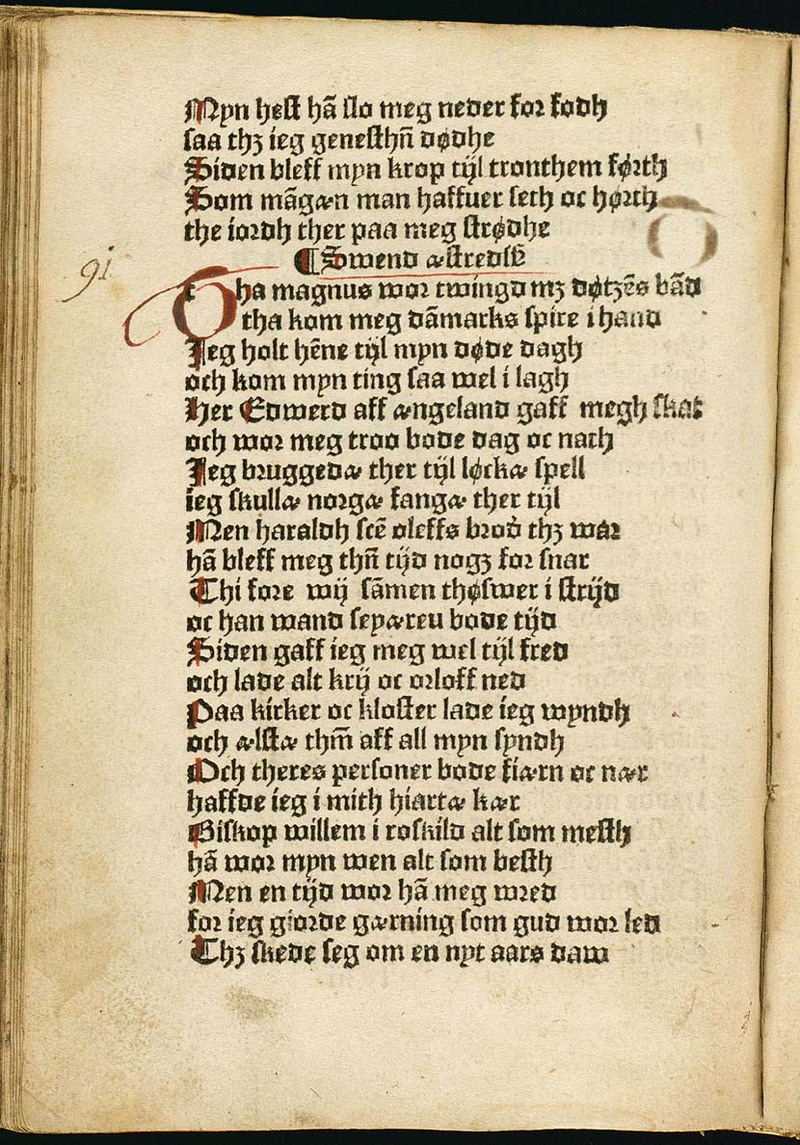 Myn hest hā slo meg neder for fodh
saa thꝫ ieg genesthn̄ dødhe
Siden bleff myn krop tijl tronthem førth
Som māgæn man haffuer seth oc hørth
the iordh ther paa meg strødhe
¶Swend æstredsē
91
Tha magnus wor twingd mꝫ døtzēs bād
tha kom meg dāmarks spire i hand
Jeg holt hēne tijl myn døde dagh
och kom myn ting saa wel i lagh
Her Edwerd aff ængeland gaff megh skat
och wor meg troo bode dag oc nath
Jeg bruggedæ ther tijl løckæ spell
ieg skullæ norgæ fangæ ther tijl
Men haraldh scē oleffs brod thꝫ war
hā bleff meg thn̄ tijd nogꝫ for snar
Thi fore wij sāmen thøswer i strijd
oc han wand seyæren bode tijd
Siden gaff ieg meg wel tijl fred
och lade alt krij oc orloff ned
Paa kirker oc kloster lade ieg wyndh
och ælstæ thm̄ aff all myn syndh
Och theres personer bode fiærn oc nær
haffde ieg i mith hiartæ kær
Biskop willem i roskild alt som mesth
hā wor myn wen alt som besth
Men en tijd wor hā meg wred
for ieg giorde gærning som gud wor led
Thꝫ skede seg om en nyt aars daw